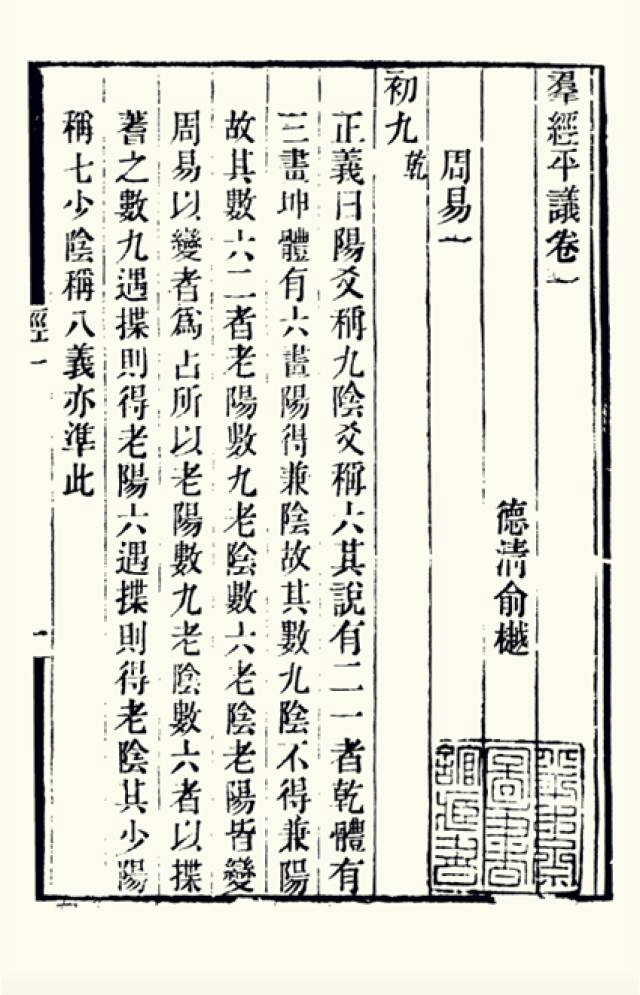 羣經平議卷一
德清俞樾
周易一
初九 乾
正義曰陽爻稱九陰爻稱六其說有二一者乾體有
三畫坤體有六畫陽得兼陰故其數九陰不得兼陽
故其數六二者老陽數九老陰數六老陰老陽皆變
周易以變者爲占所以老陽數九老陰數六者以揲
蓍之數九遇揲則得老陽六遇揲則得老陰其少陽
稱七少陰稱八義亦準此
經一
一